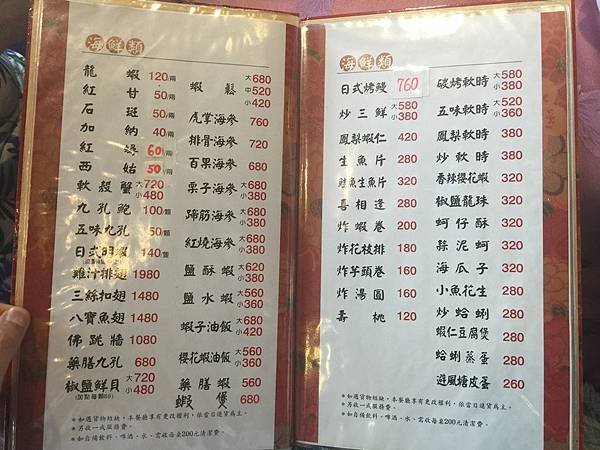 海鮮類
龍蝦 120/兩
紅甘 50/兩
石斑 50/兩
加納 40/兩
紅 60/兩
西姑 50/兩
軟殼蟹 大720 小480
九孔鮑 100/顆
五味九孔 50/顆
日式明蝦 140/隻
雞汁排翅 1980
三絲扣翅 1480
八寶魚翅 1480
佛跳牆 1080
藥膳九孔 680
椒鹽鮮貝 大720 小480
蝦鬆 大680 中520 小420
虎掌海參 760
排骨海參 720
百果海參 680
栗子海參 大680 小340
蹄筋海參 大680 小340
紅燒海參 大680 小340
鹽酥蝦 大620 小380
鹽水蝦 大560 小360
蝦子油飯 大680 小420
櫻花蝦油飯 大560 小360
藥膳蝦 560
蝦煲 680
*如遇貨物短缺，本餐廳享有更改權利，依當日進貨為主。
*另收一成服務費。
*如自備飲料、啤酒、水、需收每桌200元清潔費。
海鮮類
日式烤鰻 760
炒三鮮 大580 小380
鳳梨蝦仁 420
生魚片 280
鮭魚生魚片 320
喜相逢 280
炸蝦卷 200
炸花枝排 180
炸芋頭卷 160
炸湯圓 160
壽桃 120
碳烤軟時 大580 小380
五味軟時 大520 小360
鳳梨軟時 380
炒軟時 380
香辣櫻花蝦 320
椒鹽龍珠 320
蚵仔酥 320
蒜泥蚵 320
海瓜子 320
小魚花生 280
炒蛤蜊 280
蝦仁豆腐煲 280
蛤蜊蒸蛋 280
避風塘皮蛋 260
*如遇貨物短缺，本餐廳享有更改權利，依當日進貨為主。
*另收一成服務費。
*如自備飲料、啤酒、水、需收每桌200元清潔費。